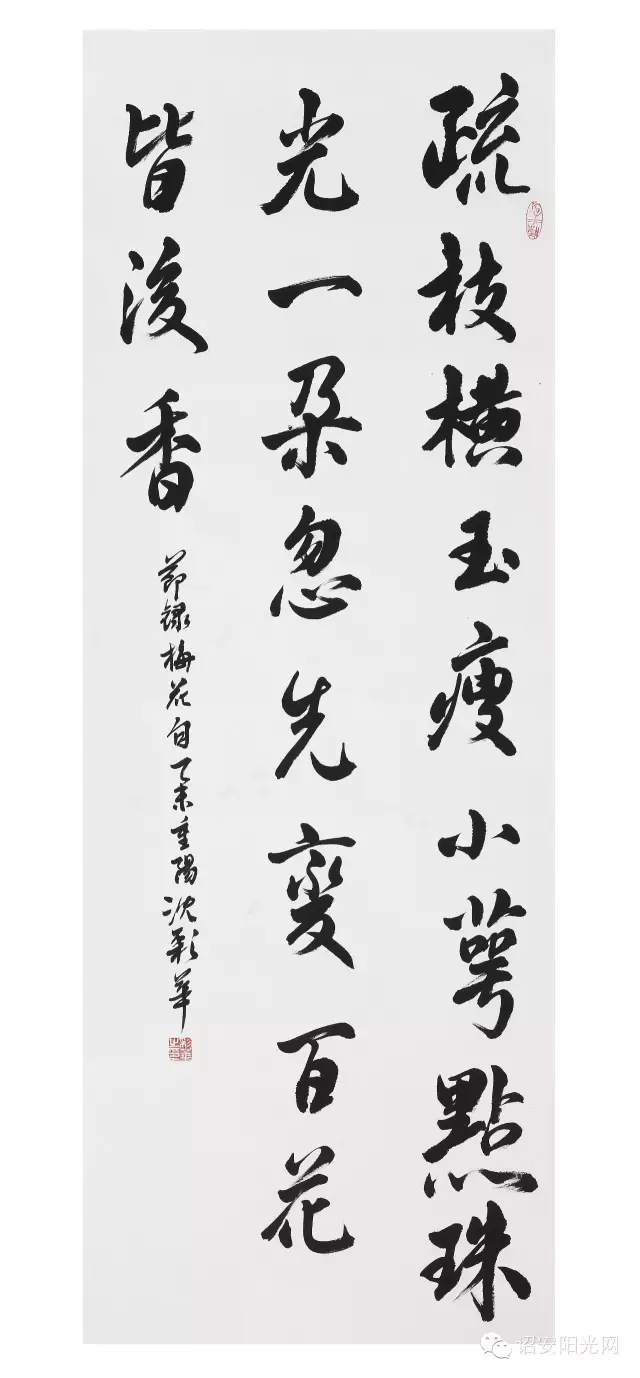 疏枝橫玉瘦小萼點珠
光一朵忽先變百花
皆後香
節錄梅花句乙未重陽沈彩華
诏安阳光网